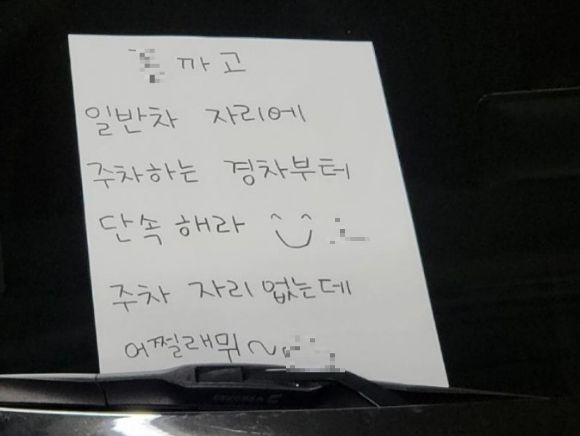 까고
일반차 자리에
주차하는 경차부터
단속 해라
주차 자리 없는데
어쩔래뭐~